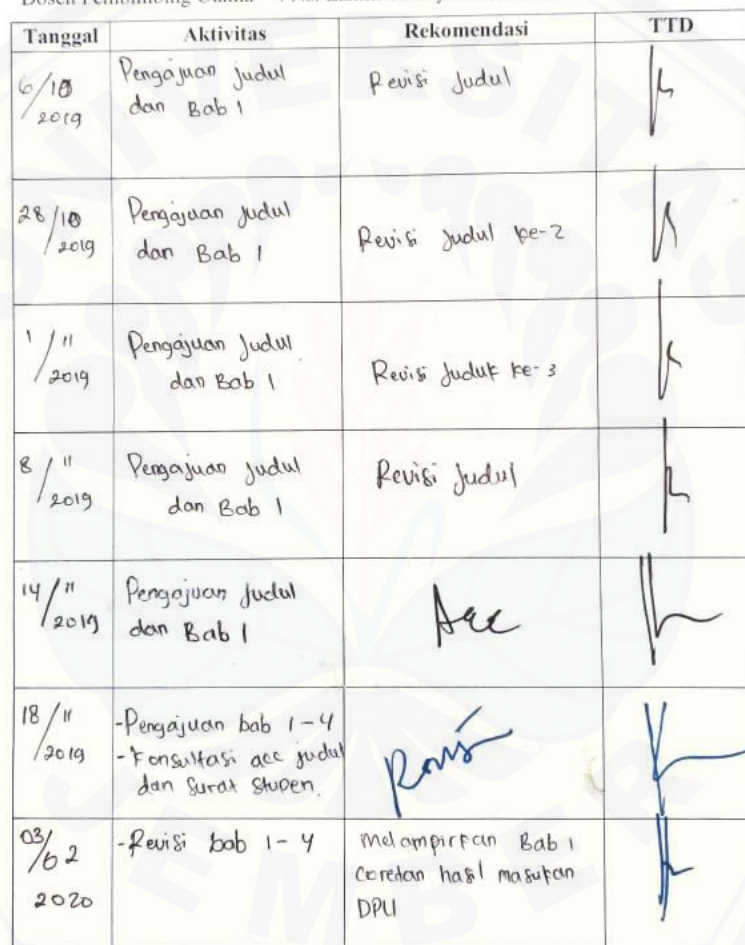 Dosen Pembimbing Utama
Tanggal Aktivitas Rekomendasi TTD
6/10 2019
Pengajuan judul
dan Bab 1
Revisi Judul
28/10 2019
Pengajuan Judul
dan Bab 1
Revisi Judul ke-2
1/11 2019
Pengajuan Judul
dan Bab 1
Revisi Juduk ke-3
8/11 2019
Pengajuan Judul
dan Bab 1
Revisi Judul
14/11 2019
Pengajuan Judul
dan Bab 1
Acc
18/11 2019
-Pengajuan bab 1-4
-Konsultasi acc judul
dan Surat Stupen.
Revisi
03/02 2020
-Revisi bab 1-4
Melampirkan Bab 1
Coretan hasil masukan
DPU
UNIVERSITAS
JEMBER